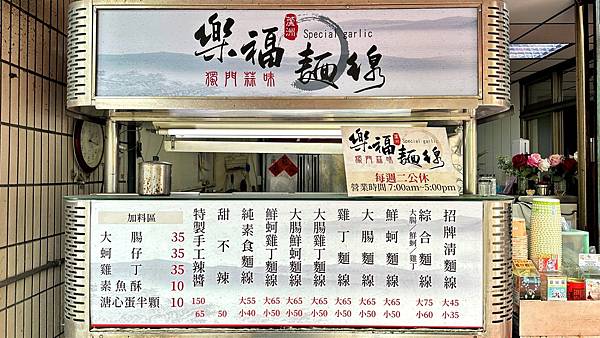 蘆洲
Special garlic
樂福麵線
獨門蒜味
蘆洲
Special garlic
樂福麵線
獨門蒜味
每週二公休
營業時間 7:00am~5:00pm
加料區
大腸 35
蚵仔 35
雞丁 35
素魚酥 10
溏心蛋半顆 10
招牌清麵線 大45 小35
綜合麵線 大腸/鮮蚵/雞丁 大75 小60
鮮蚵麵線 大65 小50
大腸麵線 大65 小50
雞丁麵線 大65 小50
大腸雞丁麵線 大65 小50
大腸鮮蚵麵線 大65 小50
鮮蚵雞丁麵線 大65 小50
純素食麵線 大55 小40
甜不辣 50
特製手工辣醬 150 65